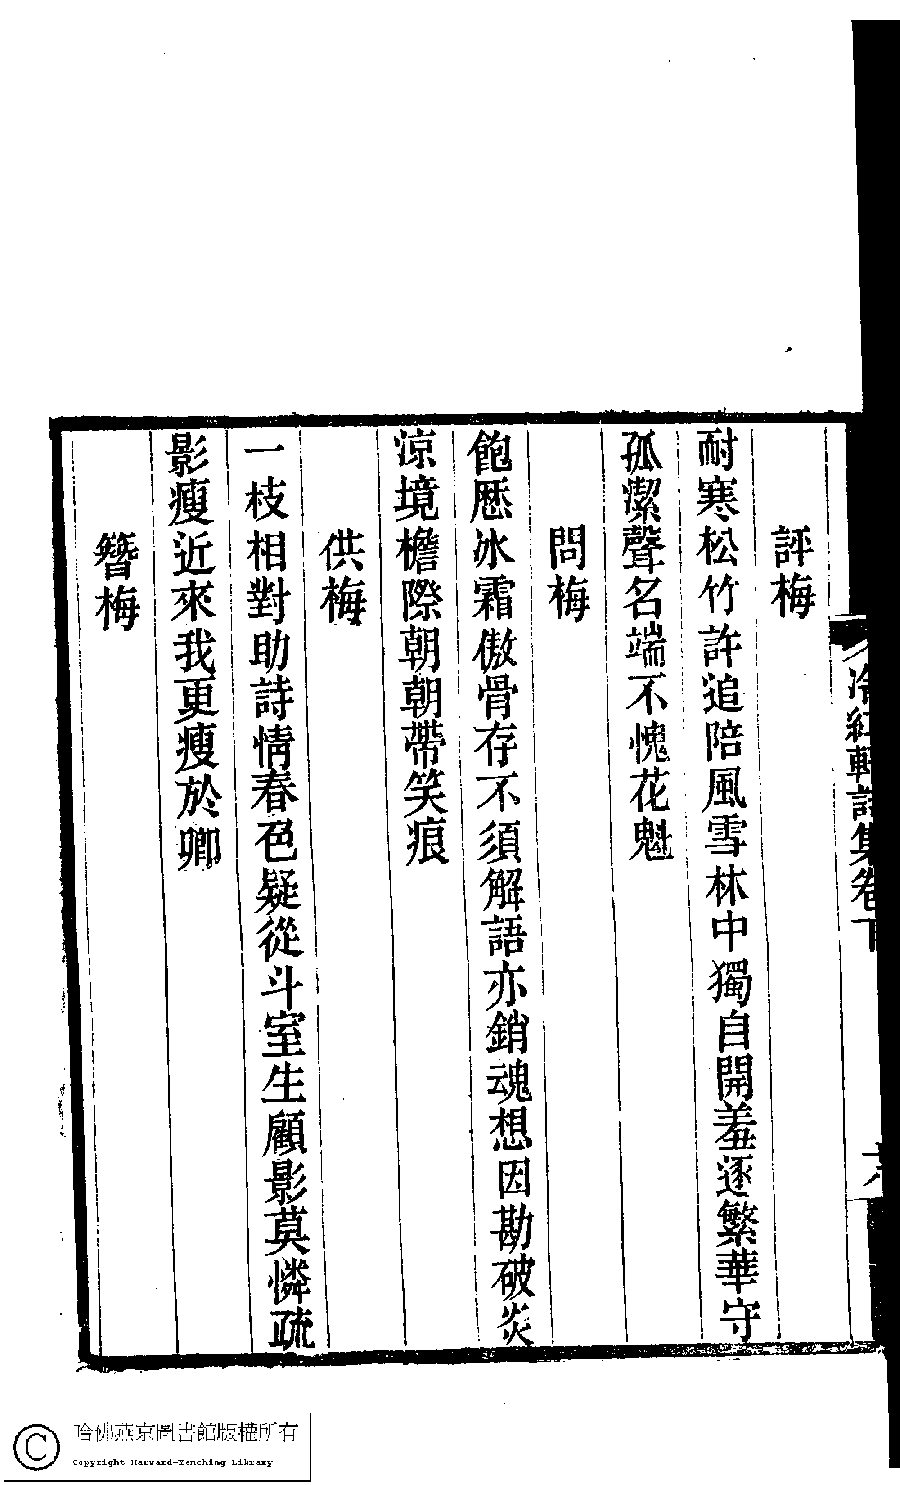 冷紅軒詩集卷下
評梅
耐寒松竹許追陪風雪林中獨自開羞逐繁華守
孤潔聲名端不愧花魁
問梅
飽歷冰霜傲骨存不須解語亦銷魂想因勘破炎
涼境檐際朝朝帶笑痕
供梅
一枝相對助詩情春色疑從斗室生顧影莫憐疏
影瘦近來我更瘦於卿
簪梅
哈佛燕京圖書館版權所有
Copyright Harvard-Yenching Library